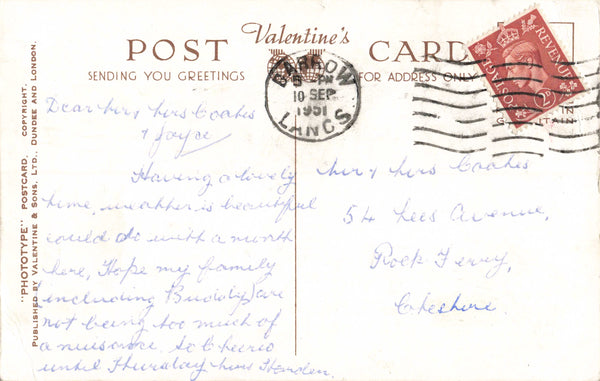 Valentine's
POST CARD
SENDING YOU GREETINGS
FOR ADDRESS ONLY
BARROW
PM
10 SEP
1951
LANCS
POSTAGE
REVENUE
2D
"PHOTOTYPE" POSTCARD. COPYRIGHT.
PUBLISHED BY VALENTINE & SONS, LTD., DUNDEE AND LONDON.
Dear Mr & Mrs Coakes
& Joyce
Having a lovely
time, weather is beautiful
could do with a month
here, Hope my family
including Buddy are
not being too much of
a nuisance. So Cheerio
until Thursday Mrs
Mr & Mrs Coakes
54 Lees Avenue,
Rock Ferry,
Cheshire